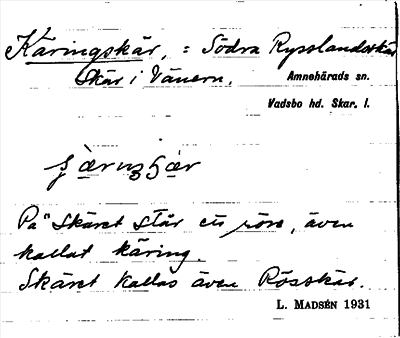 Käringskär, = Södra Rysslandsskär
Skär i Vänern. Amnehärads sn.
Vadsbo hd. Skar. l.
På Skäret står ett röse, även
kallat käring.
Skäret kallas även Rösskär.
L. MADSÉN 1931